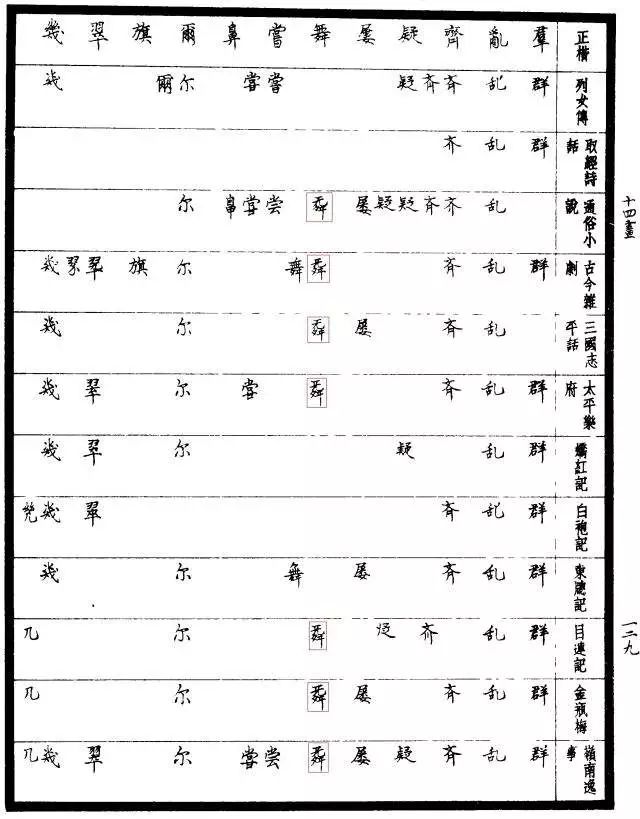 正楷 羣 亂 齊 疑 屢 舞 嘗 鼻 爾 旗 翠 幾
列女傳 群 乱 斉 斉 疑 嘗 甞 尔 爾 㡬
取經詩話 群 乱 斉
通俗小說 乱 斉 斉 疑 疑 屡 尝 甞 尔
古今雜劇 群 乱 斉 舞 尔 旗 翠 㡬
三國志平話 乱 斉 屡 尔 㡬
太平樂府 群 乱 斉 甞 尔 翠 㡬
嬌紅記 群 乱 疑 尔 翠 㡬
白袍記 群 乱 斉 翠 㡬
東牕記 群 乱 斉 屡 尔 㡬
目連記 群 乱 斉 尔 几
金瓶梅 群 乱 斉 屡 尔 几
嶺南逸事 群 乱 斉 疑 屡 尝 甞 尔 翠 㡬 几
十四畫
一二九